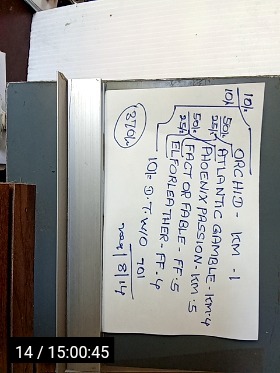 10/.
10/. ORCHID - KM - 1
50/. ATLANTIC GAMBLE - KM 4
25/. PHOENIX PASSION - KM. 5
50/. FACT OR FABLE - FF. 5
25/. ELFORLEATHER - FF. 4
10/= D.T W/O 701
370/=
14 / 15:00:45